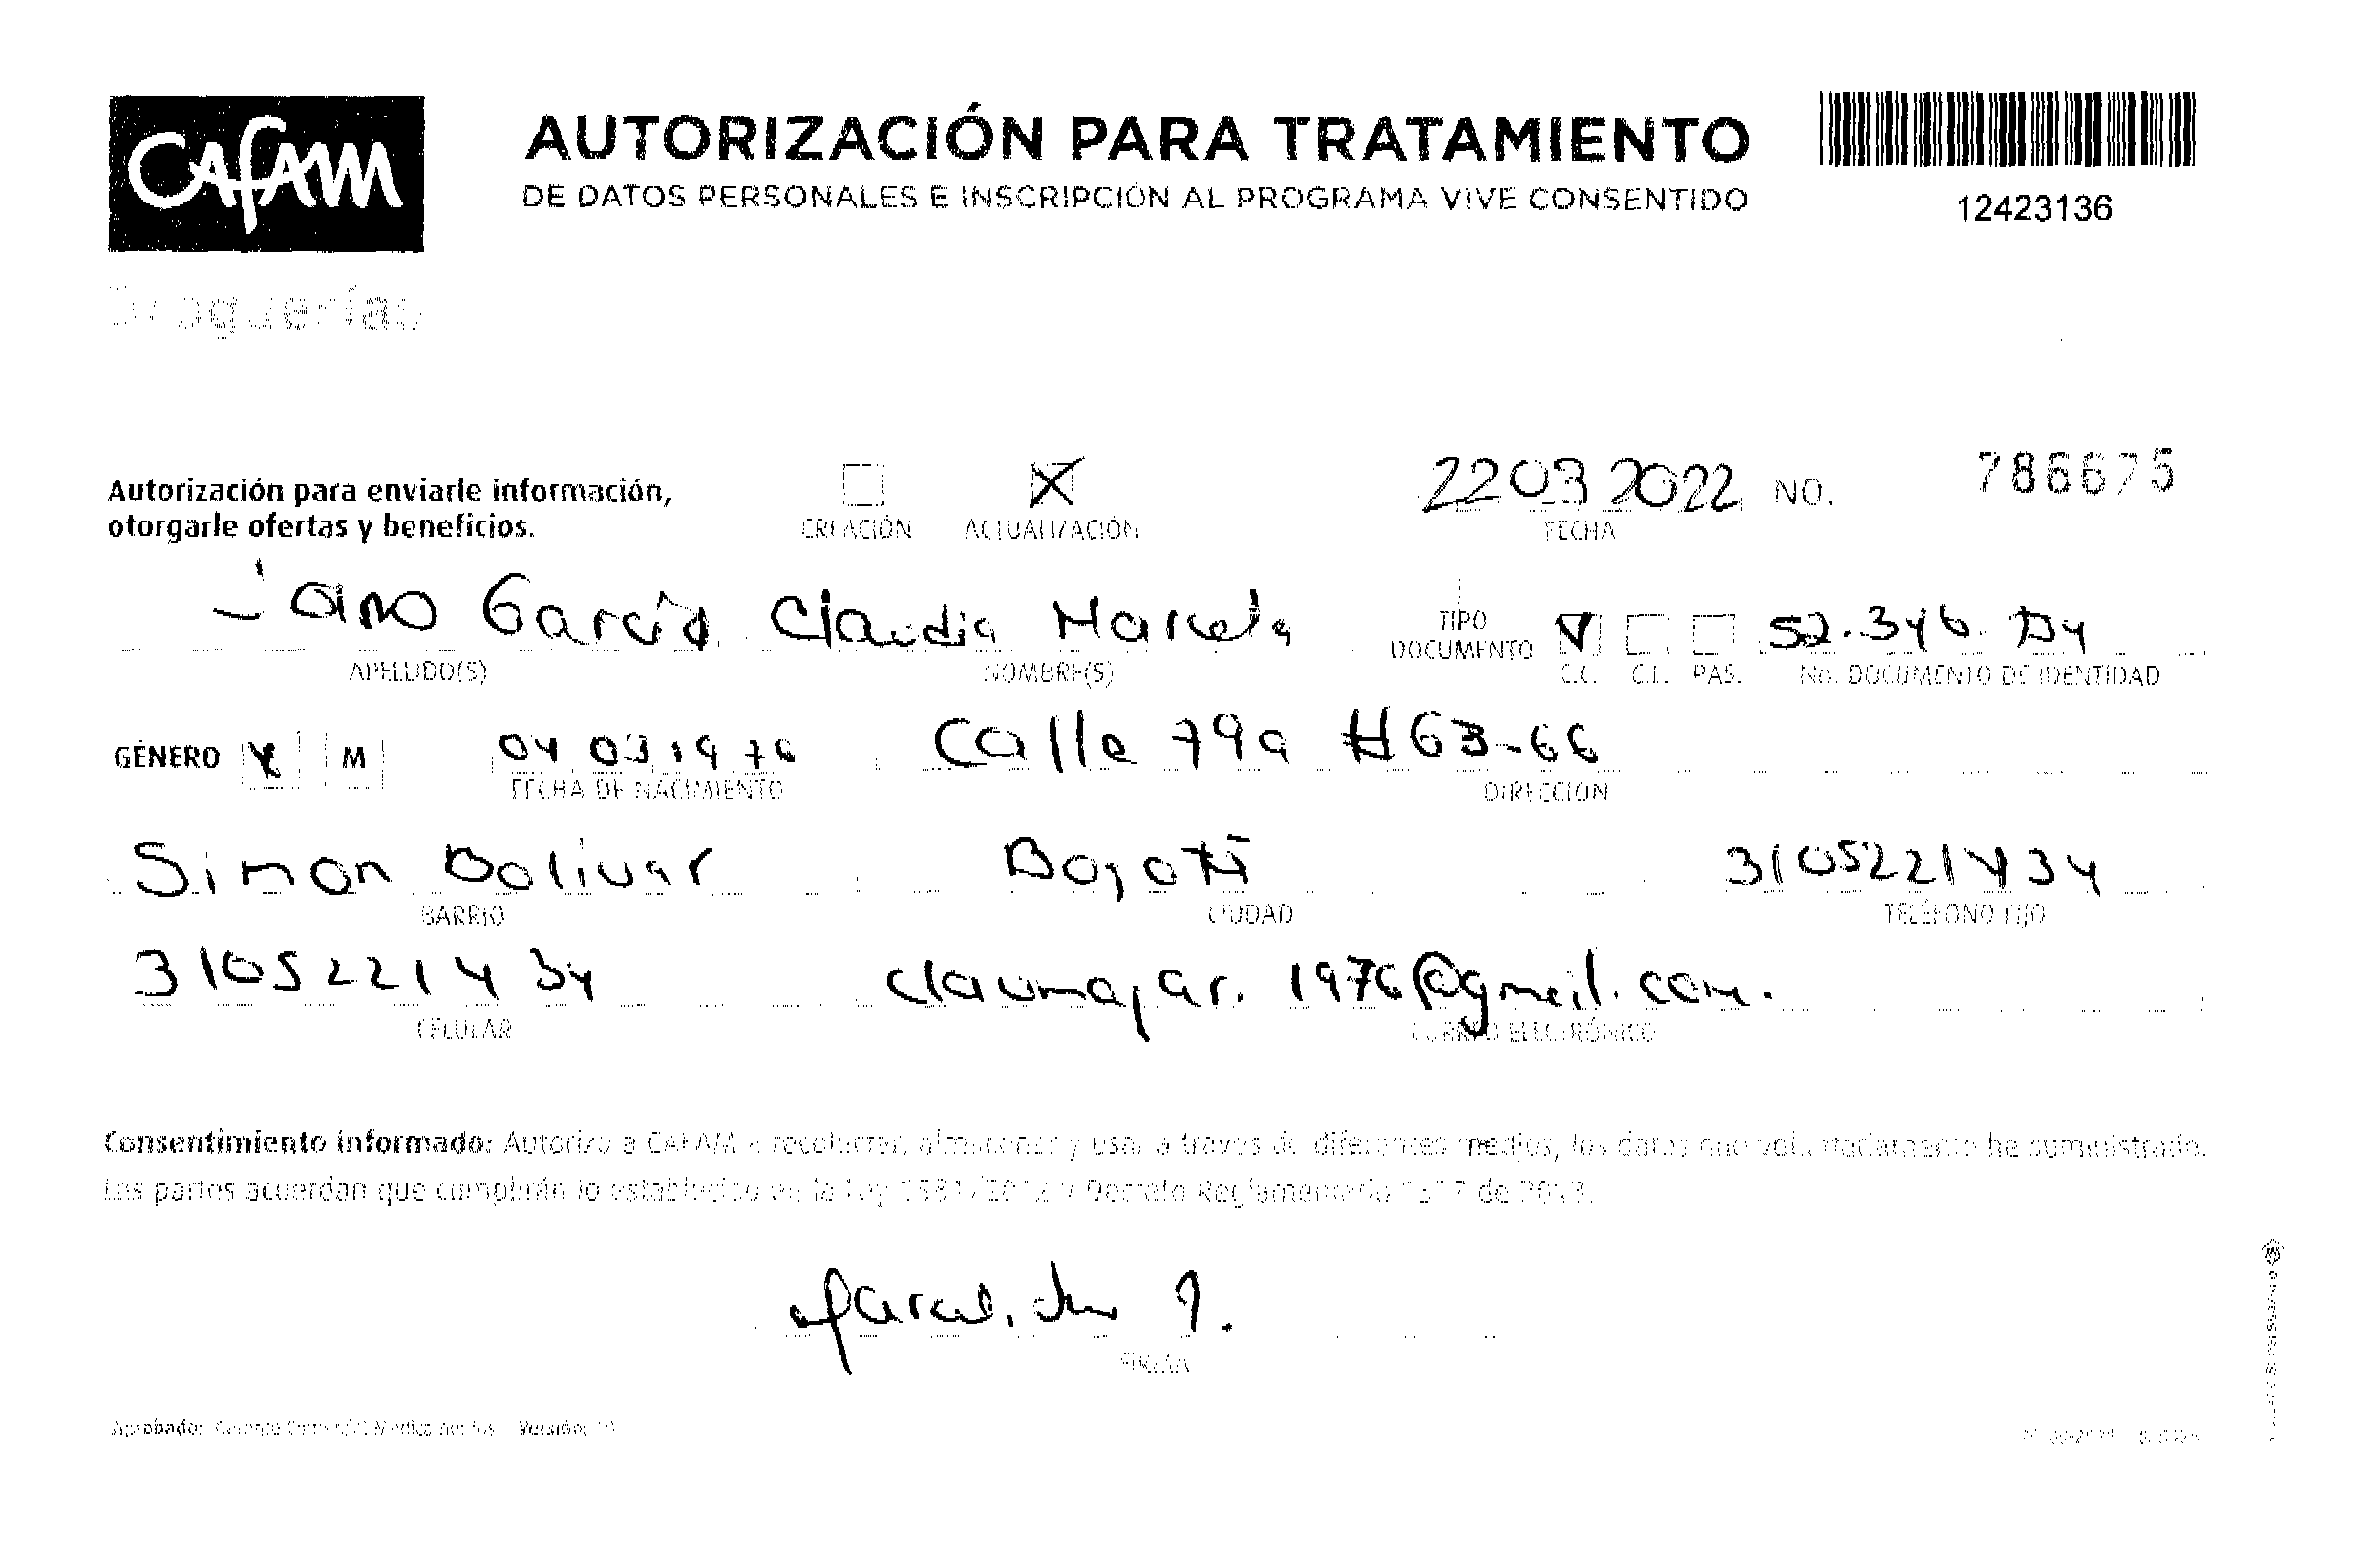 CAFAM
Droguerías
AUTORIZACIÓN PARA TRATAMIENTO
DE DATOS PERSONALES E INSCRIPCIÓN AL PROGRAMA VIVE CONSENTIDO
12423136
Autorización para enviarle información,
otorgarle ofertas y beneficios.
CREACIÓN ACTUALIZACIÓN
22 03 2022 NO. 786675
FECHA
García Claudia Marcela
APELLIDO(S) NOMBRE(S)
TIPO
DOCUMENTO
C.C. C.E. PAS. No. DOCUMENTO DE IDENTIDAD
GÉNERO M 04 03 1976 Calle 79a #63-66
FECHA DE NACIMIENTO DIRECCIÓN
Simon Bolivar Bogotá 3105221434
BARRIO CIUDAD TELÉFONO FIJO
3105221434 claumagar.1976@gmail.com.
CELULAR CORREO ELECTRÓNICO
Consentimiento informado: Autorizo a CAFAM a recolectar, almacenar y usar a través de diferentes medios, los datos que voluntariamente he suministrado.
Las partes acuerdan que cumplirán lo establecido en la Ley 1581/2012 y Decreto Reglamentario 1377 de 2013.
FIRMA
Aprobado: Versión: